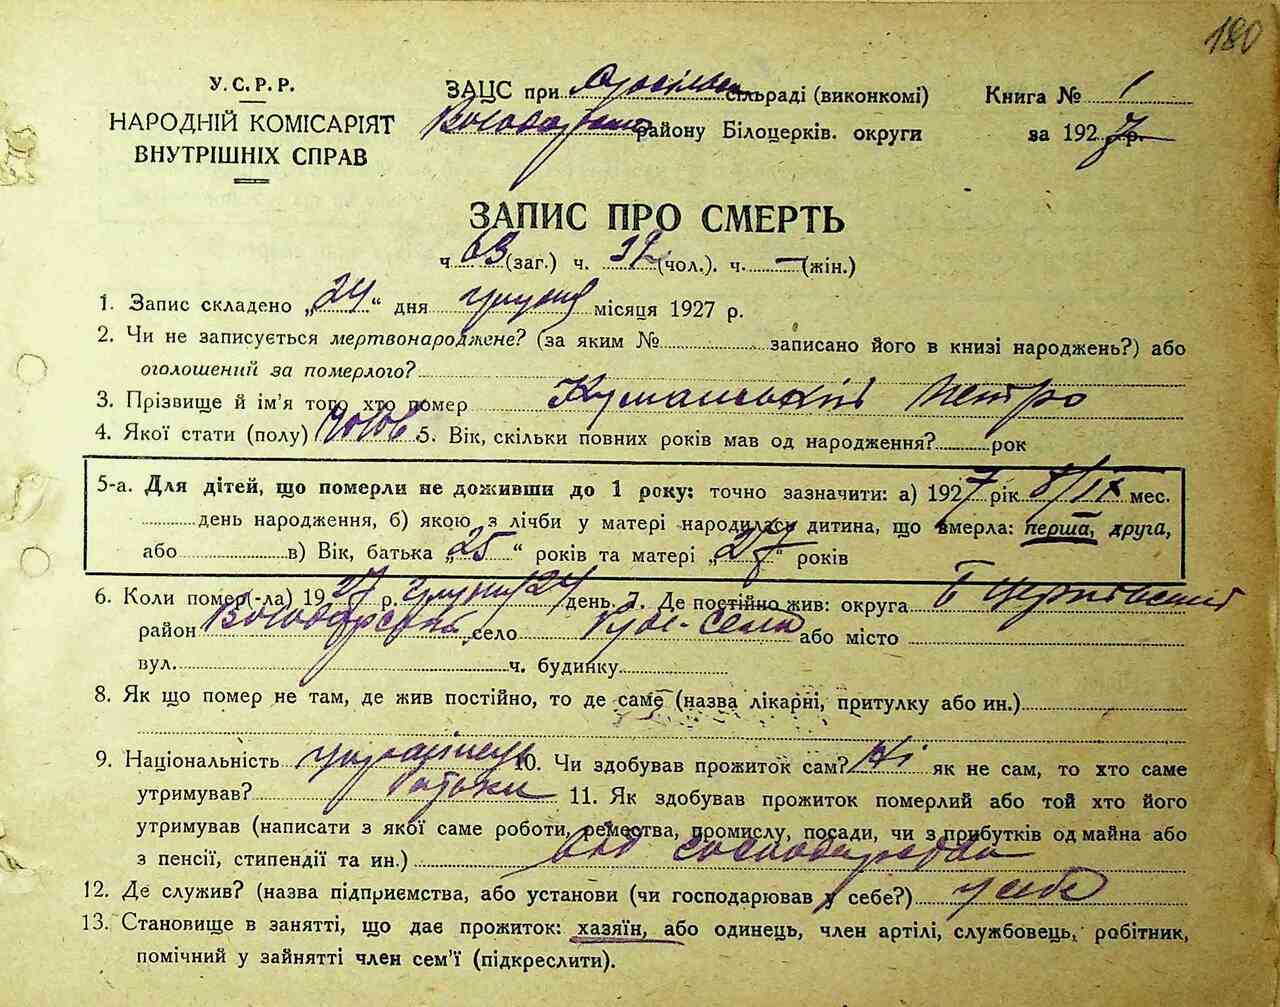 180
У.С.Р.Р.
НАРОДНІЙ КОМІСАРІЯТ
ВНУТРІШНІХ СПРАВ
ЗАЦС при сільраді (виконкомі)
району Білоцерків. округи
Книга № 1
за 1927 р.
ЗАПИС ПРО СМЕРТЬ
ч. 63 (заг.) ч. 32 (чол.). ч. — (жін.)
1. Запис складено „24“ дня грудня місяця 1927 р.
2. Чи не записується мертвонароджене? (за яким № записано його в книзі народжень?) або
оголошений за померлого?
3. Прізвище й ім'я того хто помер Куманський Петро
4. Якої стати (полу) чолов 5. Вік, скільки повних років мав од народження? рок
5-а. Для дітей, що померли не доживши до 1 року: точно зазначити: а) 1927 рік 8/IX мес.
день народження, б) якою з лічби у матері народилась дитина, що вмерла: перша, друга,
або в) Вік, батька „25“ років та матері „27“ років
6. Коли помер(-ла) 1927 р. грудня 24 день. 7. Де постійно жив: округа
район село або місто
вул. ч. будинку
8. Як що помер не там, де жив постійно, то де саме (назва лікарні, притулку або ин.)
9. Національність українець 10. Чи здобував прожиток сам? Ні як не сам, то хто саме
утримував? батьки 11. Як здобував прожиток померлий або той хто його
утримував (написати з якої саме роботи, ремества, промислу, посади, чи з прибутків од майна або
з пенсії, стипендії та ин.) від
12. Де служив? (назва підприємства, або установи (чи господарював у себе?) у себе
13. Становище в занятті, що дає прожиток: хазяїн, або одинець, член артілі, службовець, робітник,
помічний у зайнятті член сем'ї (підкреслити).